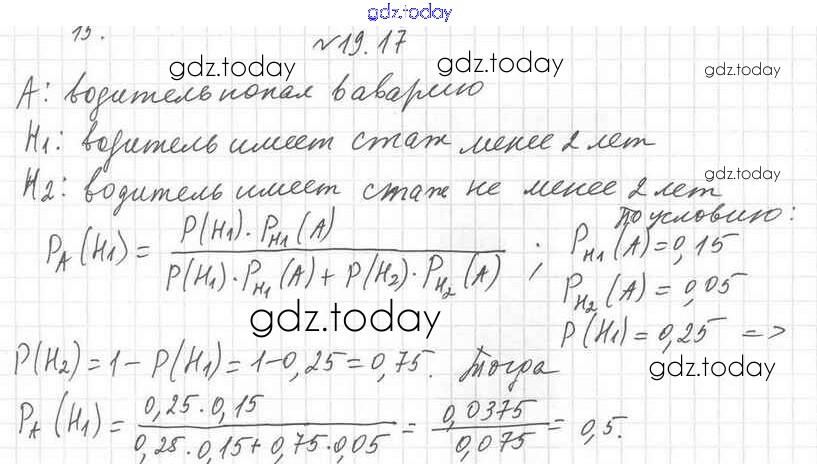 gdz.today
13.
№19.17
gdz.today gdz.today gdz.today
A: водитель попал в аварию
H₁: водитель имеет стаж менее 2 лет
gdz.today
H₂: водитель имеет стаж не менее 2 лет
По условию:
P_A(H₁) = P(H₁)·P_H₁(A) / (P(H₁)·P_H₁(A) + P(H₂)·P_H₂(A)) ; P_H₁(A) = 0,15
P_H₂(A) = 0,05
gdz.today
P(H₁) = 0,25 =>
P(H₂) = 1 - P(H₁) = 1-0,25 = 0,75. Тогда
gdz.today
P_A(H₁) = 0,25·0,15 / (0,25·0,15 + 0,75·0,05) = 0,0375 / 0,075 = 0,5.